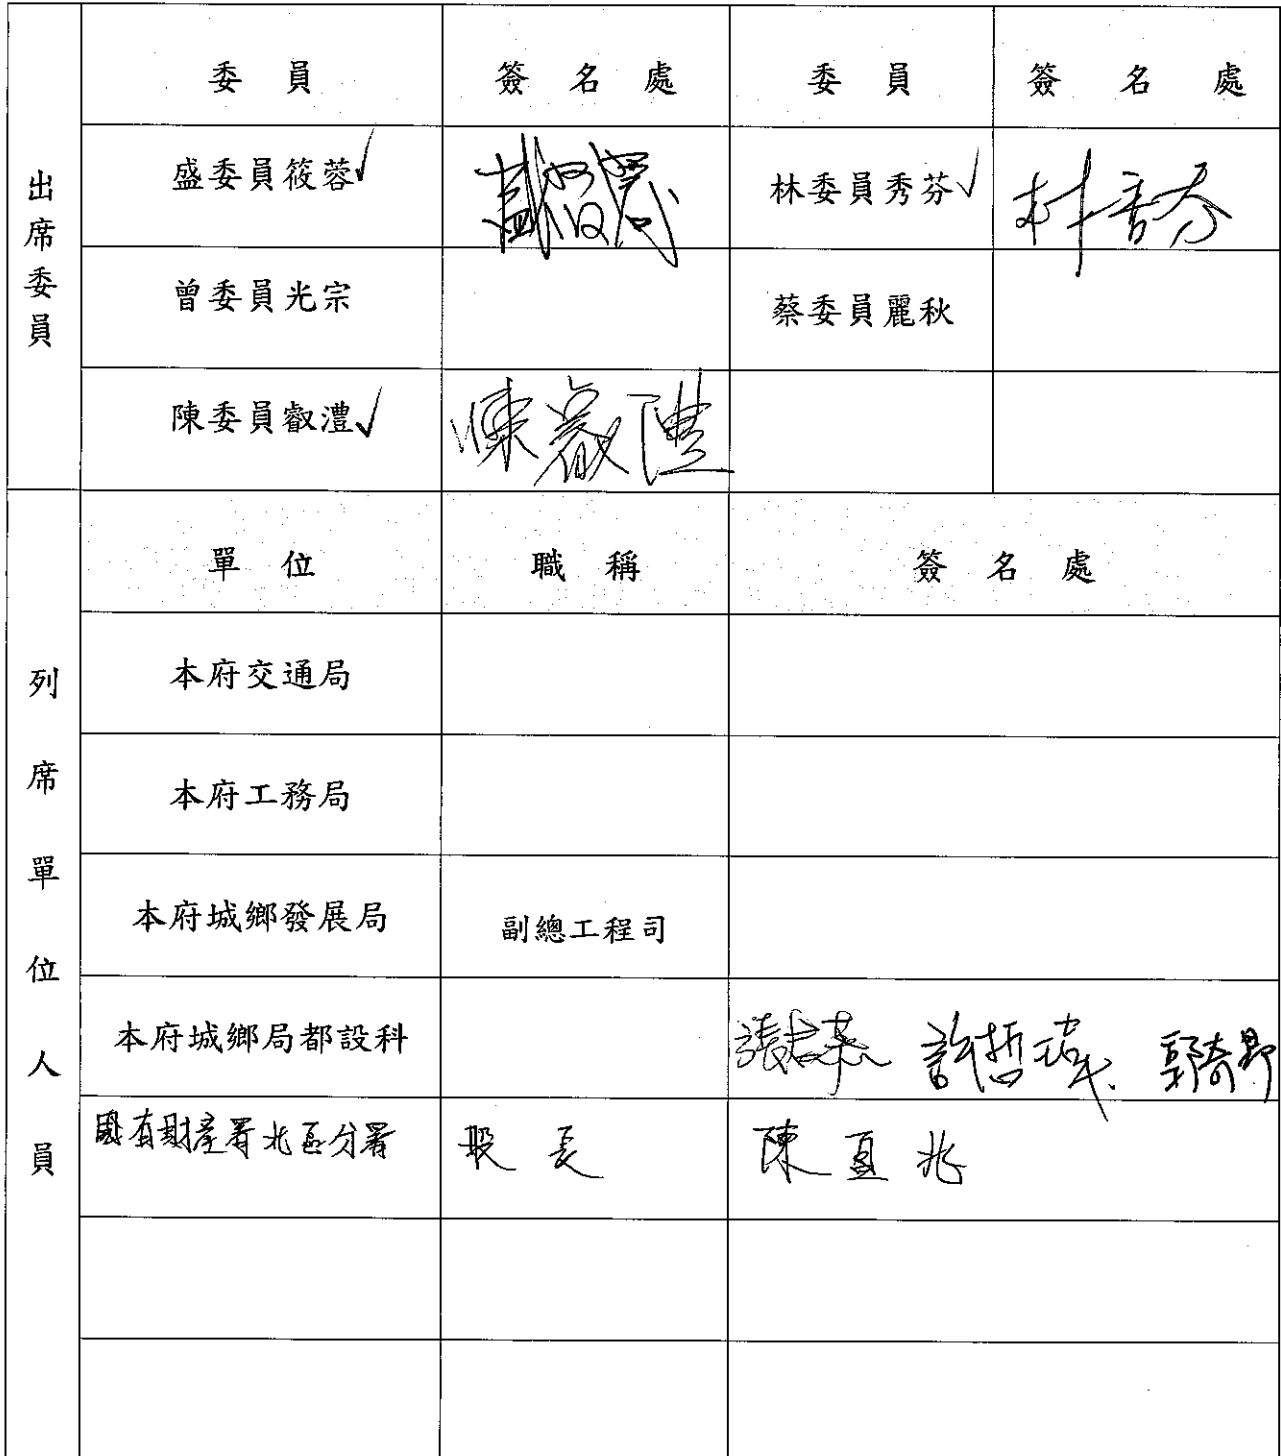 出席委員
委員 簽名處 委員 簽名處
盛委員筱蓉✓ 盛筱蓉 林委員秀芬✓ 林秀芬
曾委員光宗 蔡委員麗秋
陳委員叡澧✓ 陳叡澧
列席單位人員
單位 職稱 簽名處
本府交通局
本府工務局
本府城鄉發展局 副總工程司
本府城鄉局都設科 許哲瑋
國有財產署北區分署 股長 陳